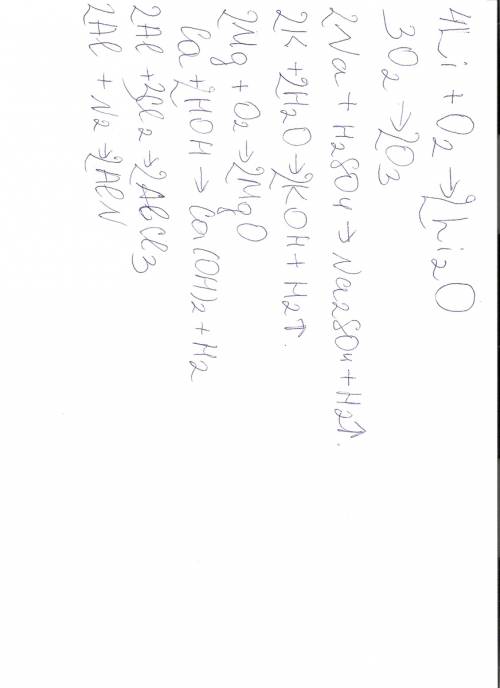 4Li + O2 → 2Li2O
3O2 → 2O3
2Na + H2SO4 → Na2SO4 + H2↑.
2K + 2H2O → 2KOH + H2↑.
2Mg + O2 → 2MgO
Ca + 2HOH → Ca(OH)2 + H2
2Al + 3Cl2 → 2AlCl3
2Al + N2 → 2AlN